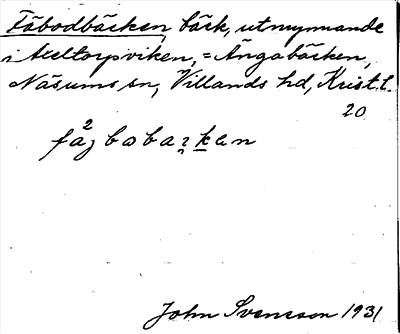 Fäbodbäcken, bäck, utmynnande
i Axeltorpviken, = Ängabäcken,
Näsums sn, Villands hd, Krist. l.
20
John Svensson 1931